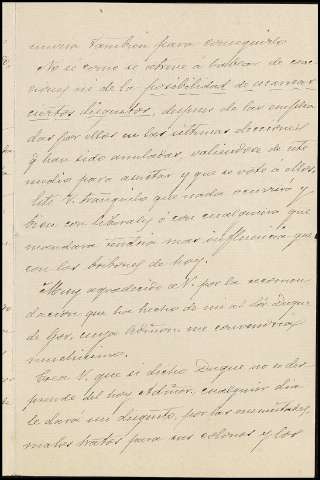 nueva tambien para conseguirlo
No sé como se atreve á hablar de coac-
ciones ni de la posibilidad de ocasionar
ciertos disgustos, despues de las emplea-
das por ellos en las ultimas elecciones
q han sido anuladas, valiendose de este
medio para asustar y que se vote á ellos,
esté V. tranquilo que nada ocurrirá y
bien con liberales ó con cualquiera que
mandara tendria mas influencia que
con los de hoy.
Muy agradecido á V. por la recomen-
dacion que ha hecho de mi al Sor Duque
de cuya Admon. me convendria
muchisimo.
Crea V. que si dicho Duque no se des-
prende del hoy Admor. cualquier dia
le dará un disgusto, por las
malos tratos para sus colonos y los